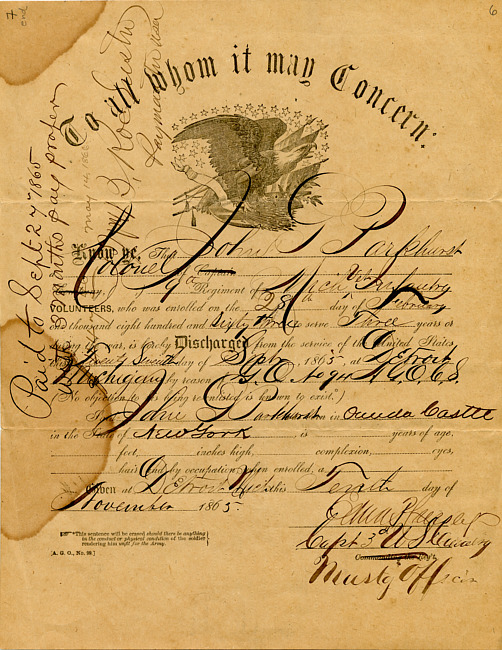 7
2nd
6
To all whom it may Concern:
Paid to Sept 27 1865
months pay proper
Paymaster USA
Know ye, That John G Parkhurst
Colonel of Captain
9th Regiment of Mich Infantry
VOLUNTEERS, who was enrolled on the 28th day of February
one thousand eight hundred and Sixty three to serve Three years or
during the war, is hereby Discharged from the service of the United States,
this Twenty Seventh day of Sept, 1865, at Detroit
Michigan by reason G.O. No 94 A.G.O. C.S.
(No objection to his being reenlisted is known to exist.*)
The said John G Parkhurst was born in Oneida Castle
in the State of New York is years of age,
feet, inches high, complexion, eyes,
hair, and by occupation, when enrolled, a
Given at Detroit Mich this Tenth day of
November 1865
Capt 3d U S Infantry
Commanding the Reg't.
Must'g Officer
*This sentence will be erased should there be anything
in the conduct or physical condition of the soldier
rendering him unfit for the Army.
[A. G. O., No. 99.]